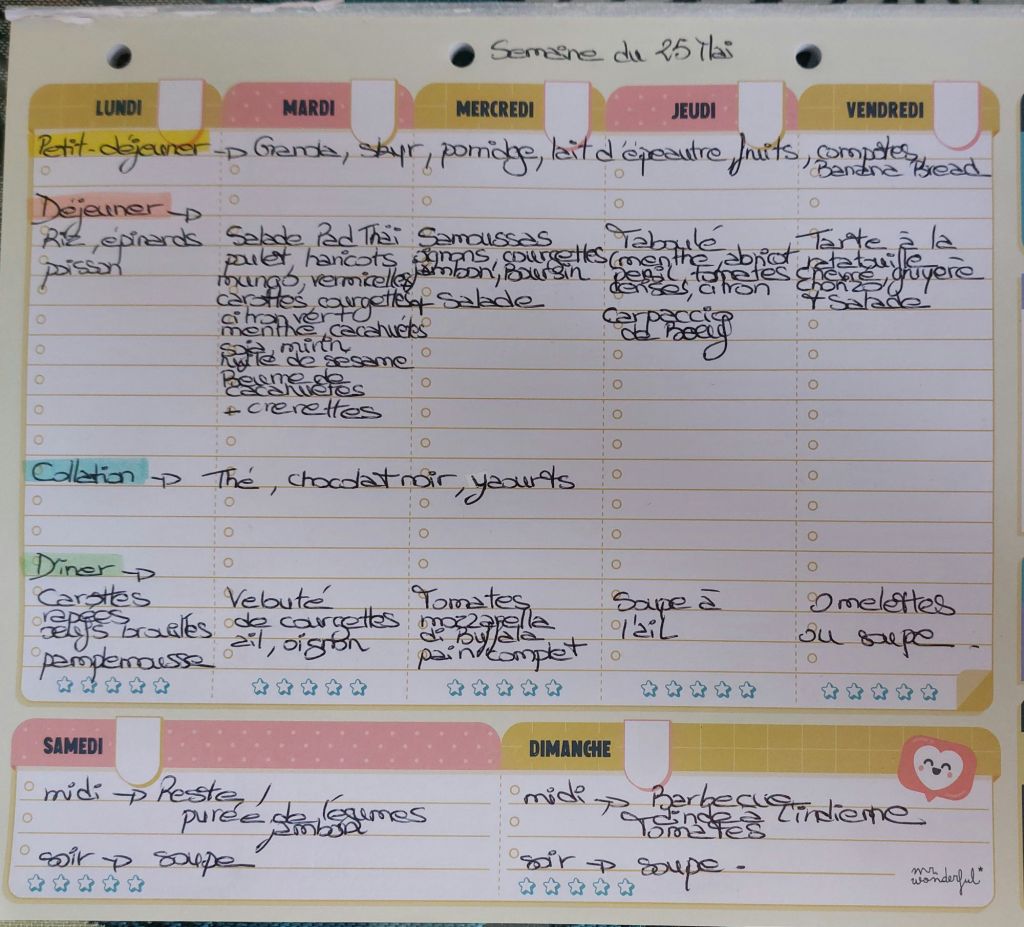 Semaine du 25 Mai
LUNDI
MARDI
MERCREDI
JEUDI
VENDREDI
Petit-déjeuner → Granola, skyr, porridge, lait d'épeautre, fruits, compotes,
Banana Bread
Déjeuner →
Riz, épinards
poisson
Salade Pad Thaï
poulet haricots
mungo, vermicelles
carottes courgettes
citron vert
menthe, cacahuètes
soja mirin
huile de sésame
Beurre de
cacahuètes
+ crevettes
Samoussas
oignons, courgettes
jambon, Boursin
+ Salade
Taboulé
(menthe, abricot
persil, tomates
cerises, citron
Carpaccio
de Boeuf
Tarte à la
ratatouille
chèvre, gruyère
chorizo,
+ Salade
Collation → Thé, chocolat noir, yaourts
Dîner →
Carottes
rapées
oeufs brouillés
pamplemousse
Velouté
de courgettes
ail, oignon
Tomates
mozzarella
di Buffala
pain complet
Soupe à
l'ail
Omelettes
ou soupe.
SAMEDI
midi → Reste /
purée de légumes
jambon
soir → soupe
DIMANCHE
midi → Barbecue
dinde à l'indienne
Tomates
soir → soupe.
mr.
wonderful*